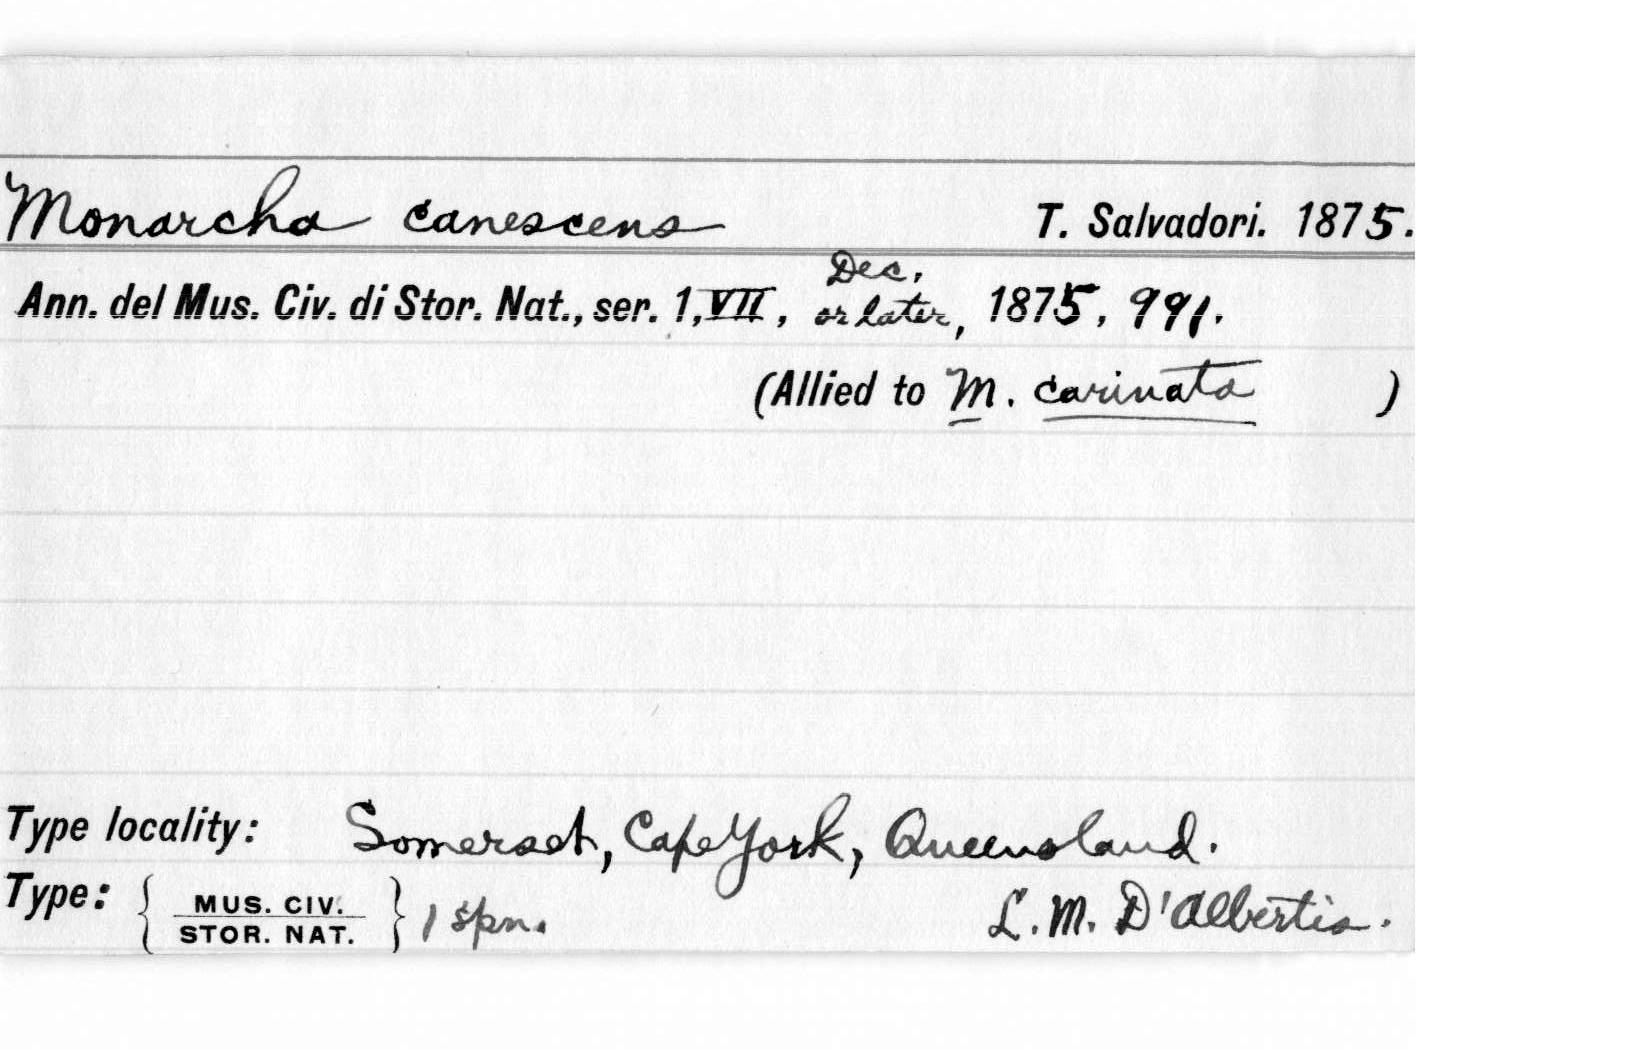 Monarcha canescens T. Salvadori. 1875.
Ann. del Mus. Civ. di Stor. Nat., ser. 1, VII, Dec. or later, 1875, 991.
(Allied to M. carinata )
Type locality: Somerset, Cape York, Queensland.
Type: { MUS. CIV. STOR. NAT. } 1 spn. L. M. D'Albertis.